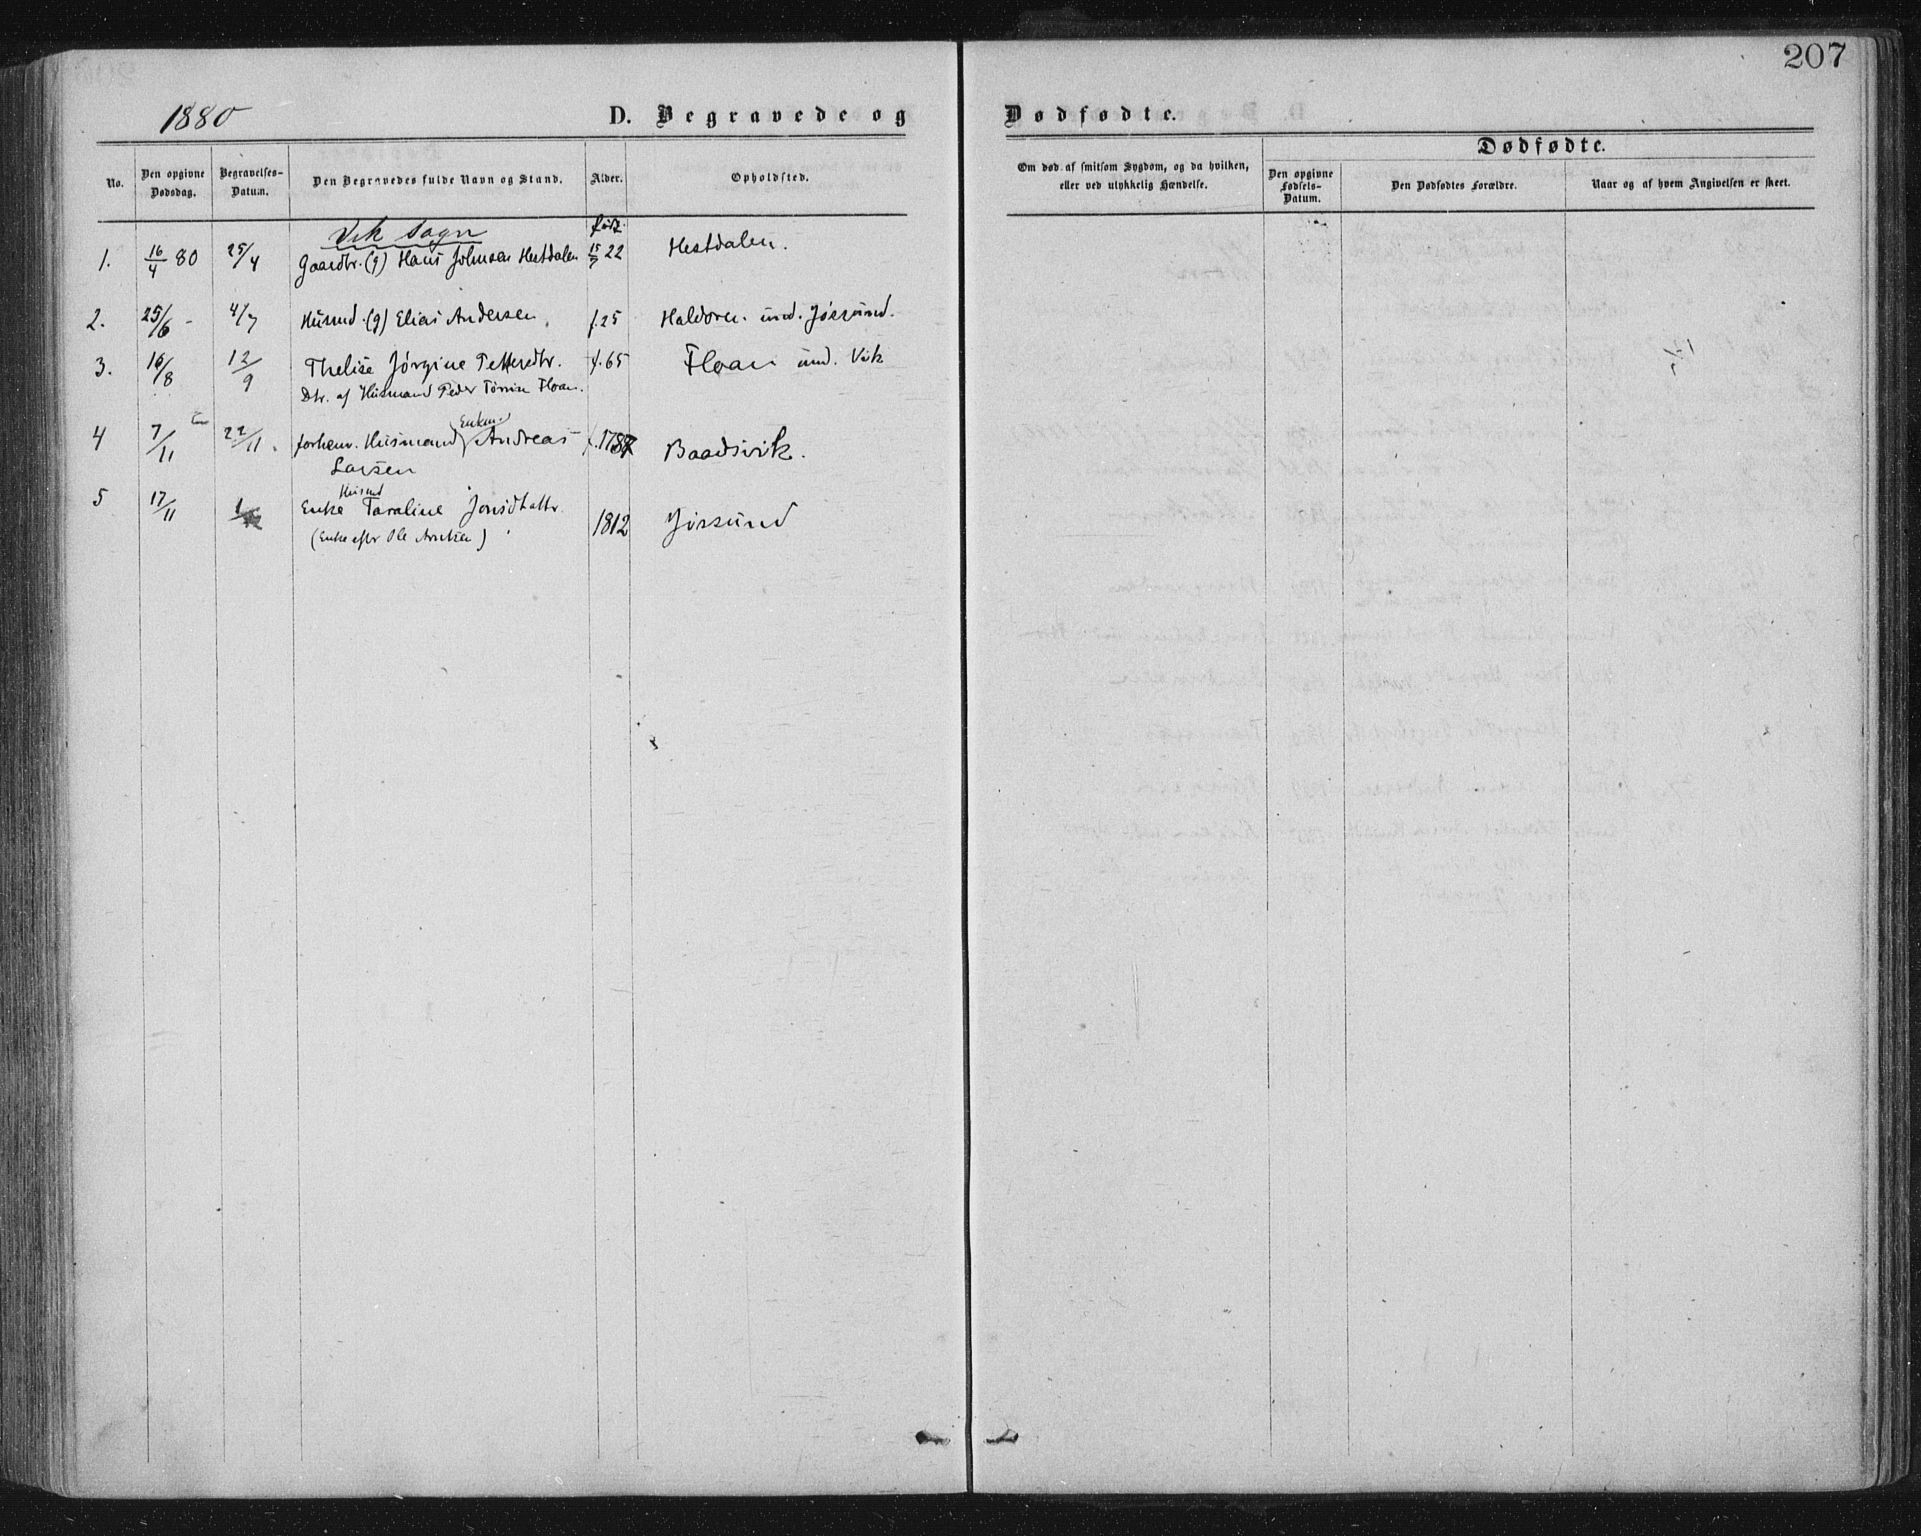 207
1880
D. Begravede og Dødfødte.
No.
Den opgivne Dødsdag.
Begravelses-Datum.
Den Begravedes fulde Navn og Stand.
Alder.
Opholdsted.
Om død af smitsom Sygdom, og da hvilken, eller ved ulykkelig Hændelse.
Dødfødte.
Den opgivne Fødsels-Datum.
Den Dødfødtes Forældre.
Naar og af hvem Angivelsen er skeet.
Vik Sogn
født
1. 16/4 80 25/4 Gaardbr. (g) Hans Johnsen Hestdalen 15/7 22 Hestdalen.
2. 25/6 - 4/7 Husmd. (g) Elias Andersen f. 25 Haldoren und. Jørsund.
3. 16/8 12/9 Thelise Jørgine Pettersdtr. f. 65 Floan und. Vik
Dtr. af Husmand Peder Floan.
4 7/11 22/11. forhenv. Husmand Enkem. Andreas f. 1787 Baadsvik.
Larsen
5 17/11 Enke Husmd Taraline Jonsdatter 1812 Jørsund
(Enke efter Ole Arntsen)